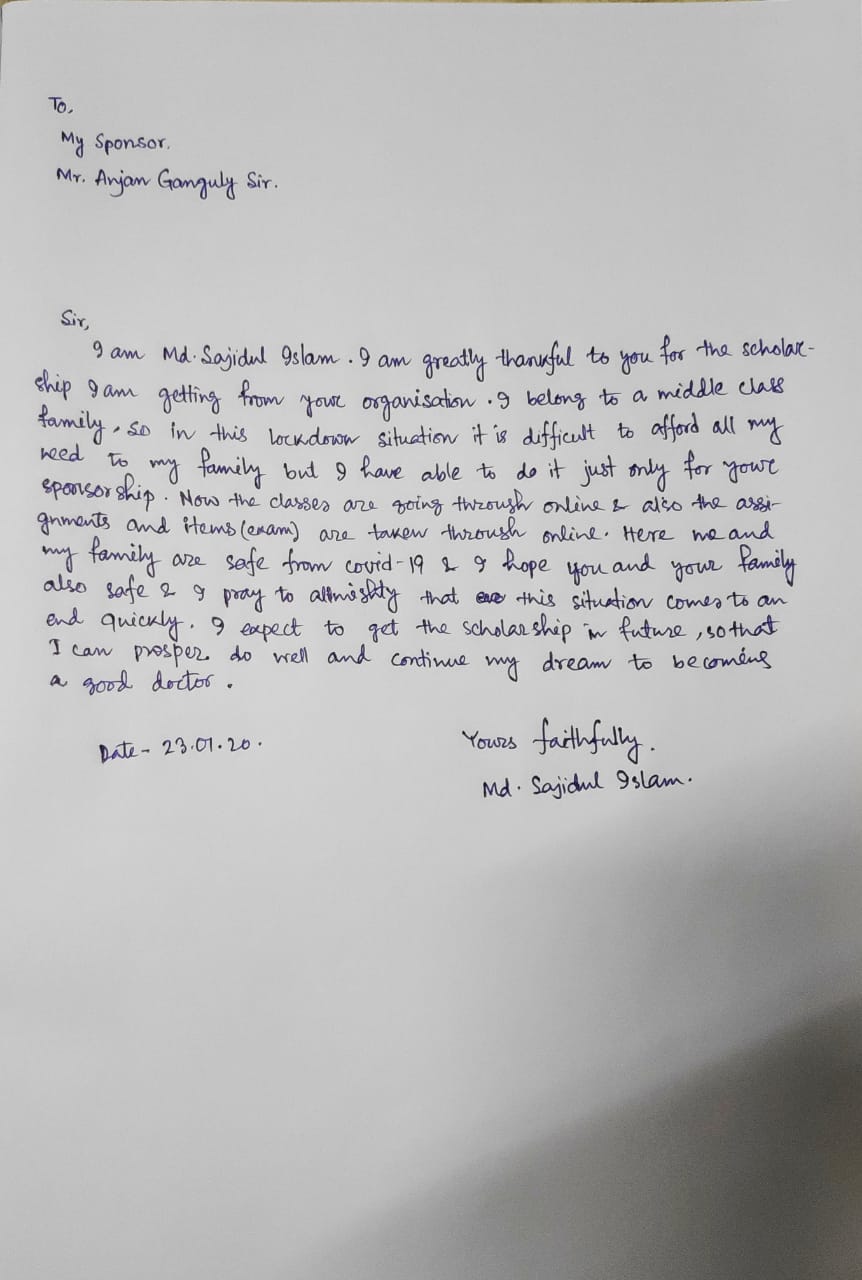 To,
My Sponsor.
Mr. Anjan Ganguly Sir.
Sir,
I am Md. Sajidul Islam. I am greatly thankful to you for the scholar-
ship I am getting from your organisation. I belong to a middle class
family, so in this lockdown situation it is difficult to afford all my
need to my family but I have able to do it just only for your
sponsorship. Now the classes are going through online & also the assi-
gnments and items (exam) are taken through online. Here me and
my family are safe from covid-19 & I hope you and your family
also safe & I pray to allmighty that this situation comes to an
end quickly. I expect to get the scholarship in future, so that
I can prosper do well and continue my dream to becoming
a good doctor.
Date- 23.07.20.
Yours faithfully.
Md. Sajidul Islam.